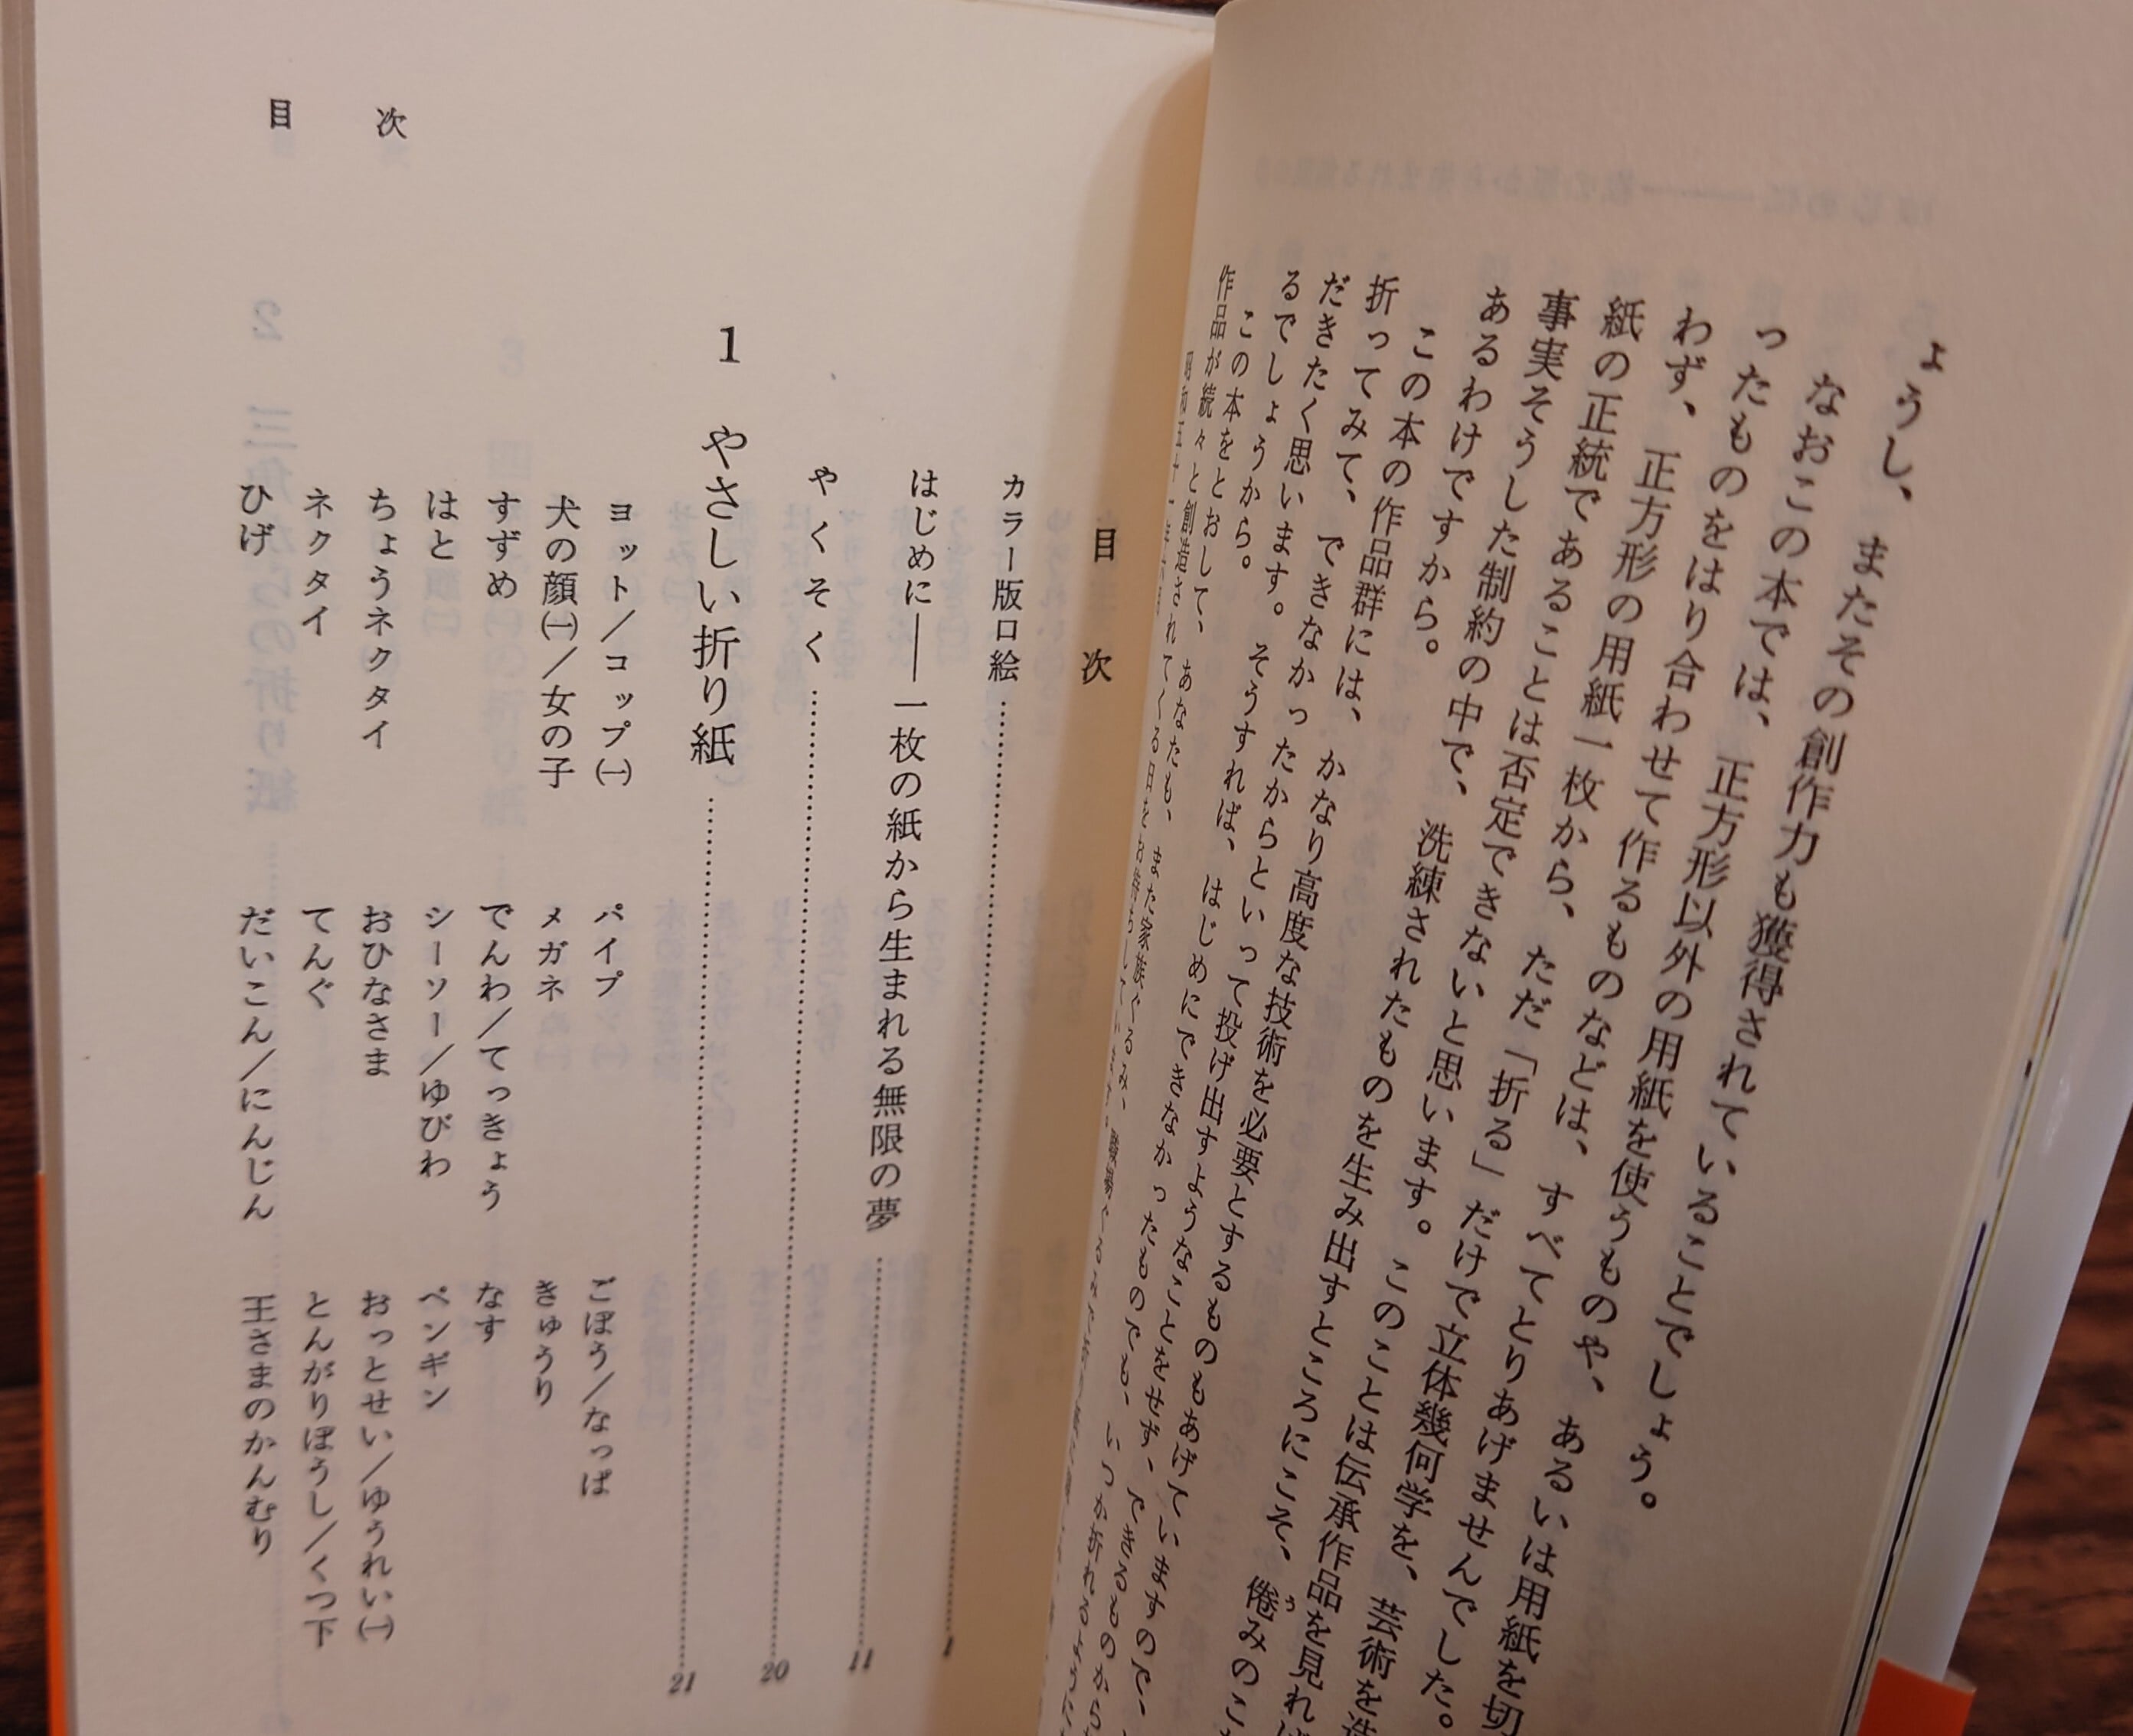 ょうし、またその創作力も獲得されていることでしょう。
なおこの本では、正方形以外の用紙を使うものや、あるいは用紙を切
ったものをはり合わせて作るものなどは、すべてとりあげませんでした。
わず、正方形の用紙一枚から、ただ「折る」だけで立体幾何学を、芸術を
紙の正統であることは否定できないと思います。このことは伝承作品を見れ
事実そうした制約の中で、洗練されたものを生み出すところにこそ、倦みのこ
あるわけですから。
この本の作品群には、かなり高度な技術を必要とするものもあげていますので、
折ってみて、できなかったからといって投げ出すようなことをせず、できるものから
だきたく思います。そうすれば、はじめにできなかったものでも、いつか折れるように
るでしょうから。
この本をとおして、あなたも、また家族ぐるみ、職場ぐるみで
作品が続々と創造されてくる日をお待ちして
目次
カラー版口絵 1
はじめに――一枚の紙から生まれる無限の夢 11
やくそく 20
1 やさしい折り紙 21
ヨット/コップ㈠ パイプ ごぼう/なっぱ
犬の顔㈠/女の子 メガネ きゅうり
すずめ でんわ/てっきょう なす
はと シーソー/ゆびわ ペンギン
ちょうネクタイ おひなさま おっとせい/ゆうれい㈠
ネクタイ てんぐ とんがりぼうし/くつ下
ひげ だいこん/にんじん 王さまのかんむり
目次